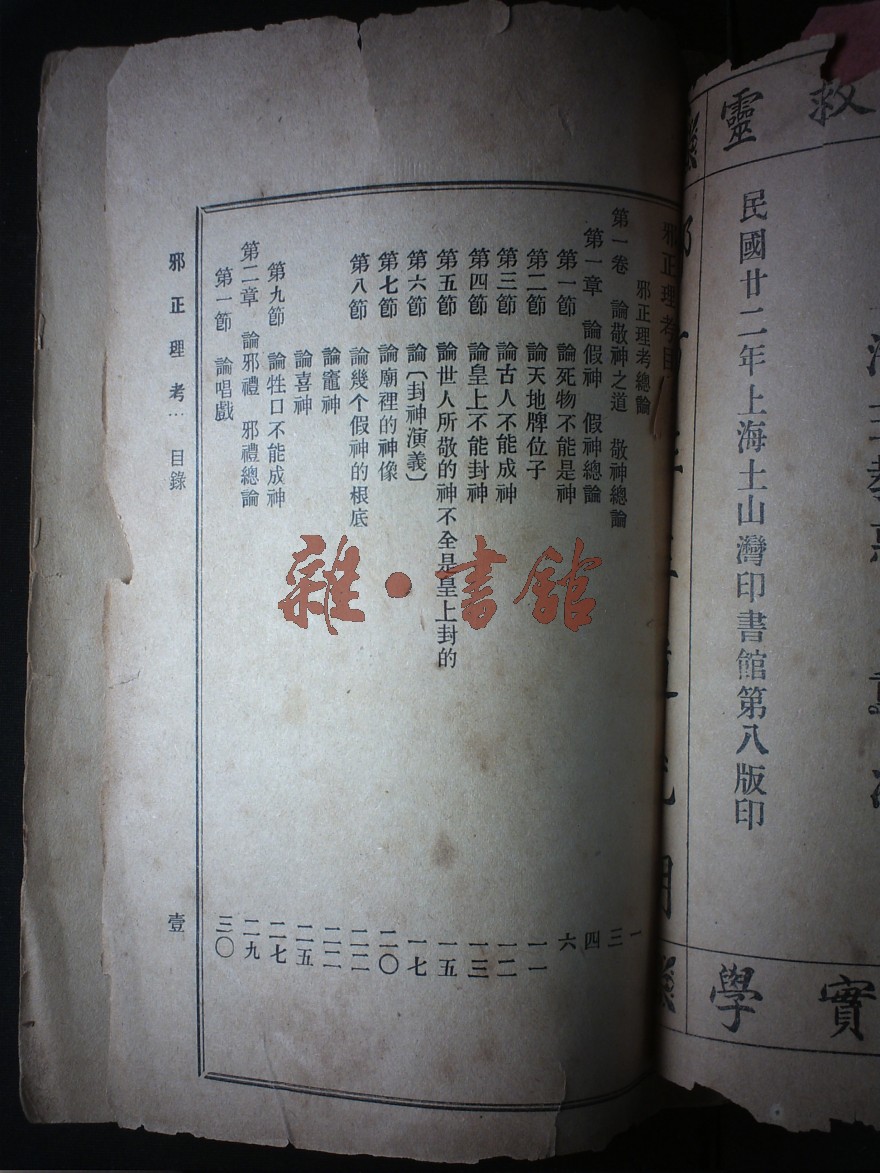 救靈
民國廿二年上海土山灣印書館第八版印
實學
邪正理考目
邪正理考總論 一
第一卷 論敬神之道 敬神總論 三
第一章 論假神 假神總論 四
第一節 論死物不能是神 六
第二節 論天地牌位子 一一
第三節 論古人不能成神 一二
第四節 論皇上不能封神 一三
第五節 論世人所敬的神不全是皇上封的 一五
第六節 論〔封神演義〕 一七
第七節 論廟裡的神像 二〇
第八節 論幾个假神的根底 二二
論竈神 二二
論喜神 二五
第九節 論牲口不能成神 二七
第二章 論邪禮 邪禮總論 二九
第一節 論唱戲 三〇
邪正理考… 目錄 壹
雜·書館